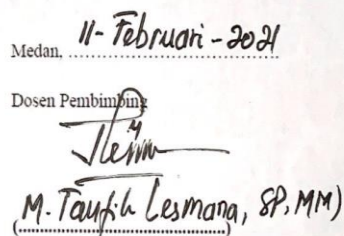 Medan, 11 - Februari - 2021
Dosen Pembimbing
(M. Taufik Lesmana, SP, MM)